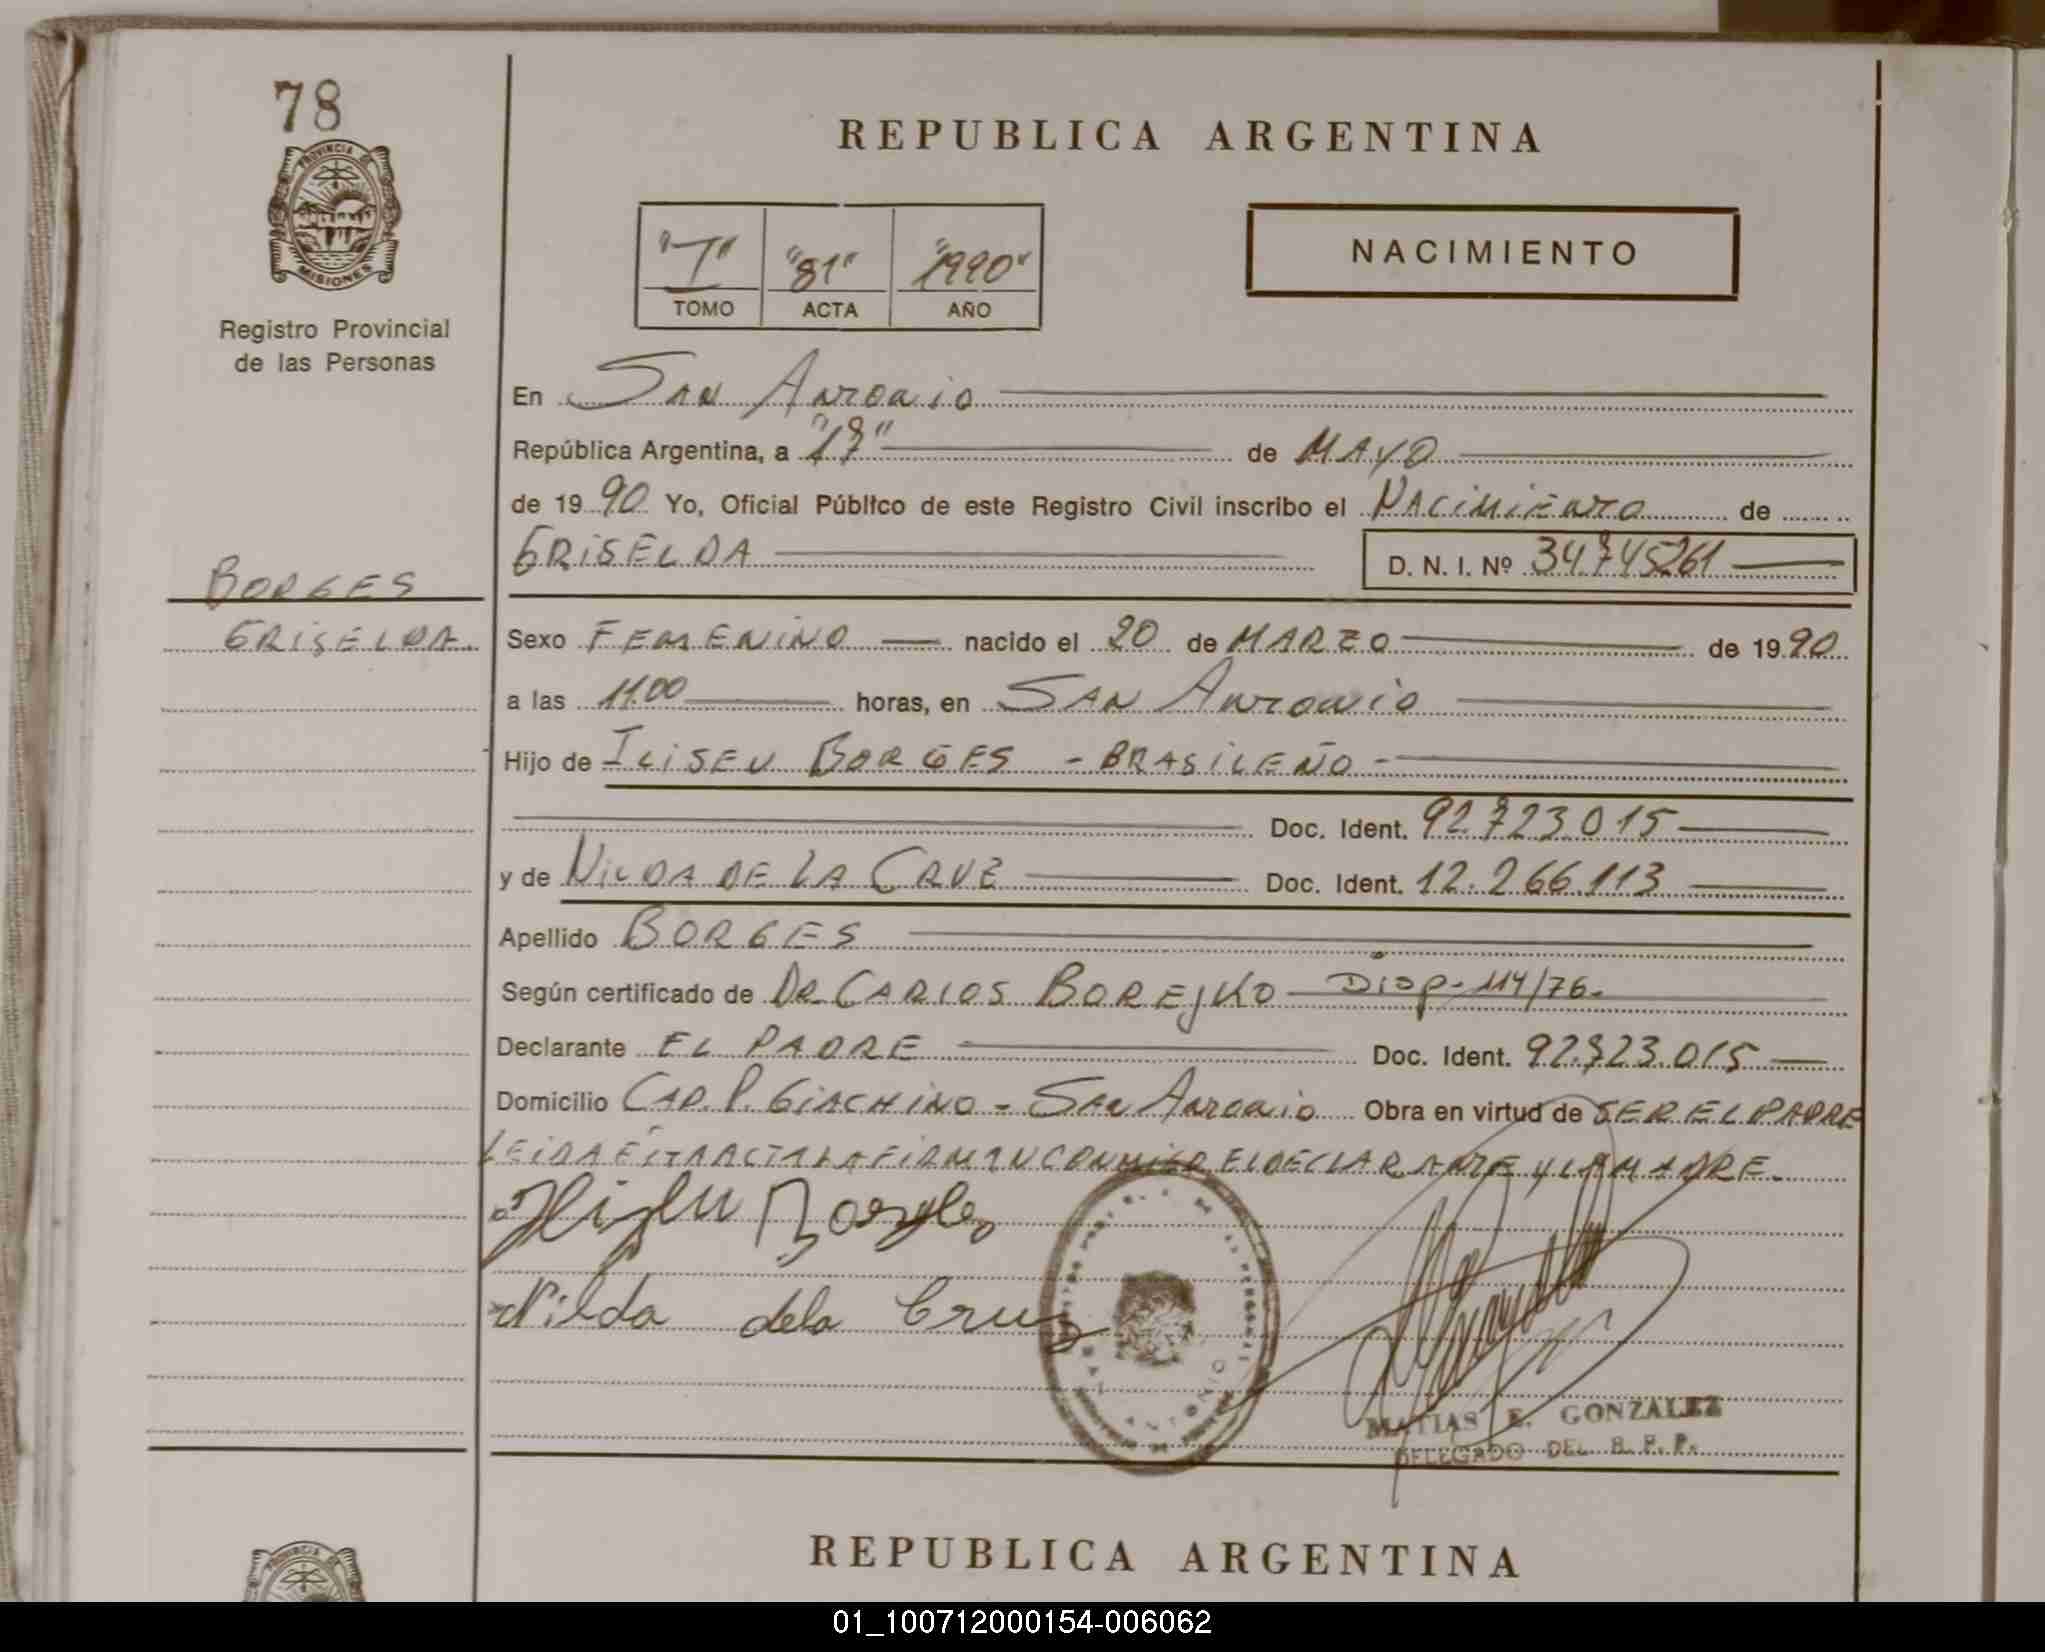 78
PROVINCIA DE
MISIONES
Registro Provincial
de las Personas
REPUBLICA ARGENTINA
"T" "81" "1990"
TOMO ACTA AÑO
NACIMIENTO
En San Antonio
República Argentina, a "17" de MAYO
de 1990 Yo, Oficial Público de este Registro Civil inscribo el NACIMIENTO de
GRISELDA D. N. I. Nº 34.745261
BORGES
GRISELDA.
Sexo FEMENINO nacido el 20 de MARZO de 1990
a las 11.00 horas, en SAN ANTONIO
Hijo de ILISEU BORGES - BRASILEÑO -
Doc. Ident. 92.723.015
y de NILDA DE LA CRUZ Doc. Ident. 12.266.113
Apellido BORGES
Según certificado de DR. CARLOS BOREJKO Disp. 114/76.
Declarante EL PADRE Doc. Ident. 92.723.015
Domicilio CAP. P. GIACHINO - SAN ANTONIO Obra en virtud de SER EL PADRE
LEIDA ESTA ACTA LA FIRMAN CONMIGO EL DECLARANTE Y LA MADRE.
Nilda dela Cruz
SAN ANTONIO
MATIAS E. GONZALEZ
DELEGADO DEL R. P. P.
REPUBLICA ARGENTINA
PROVINCIA DE
01_100712000154-006062